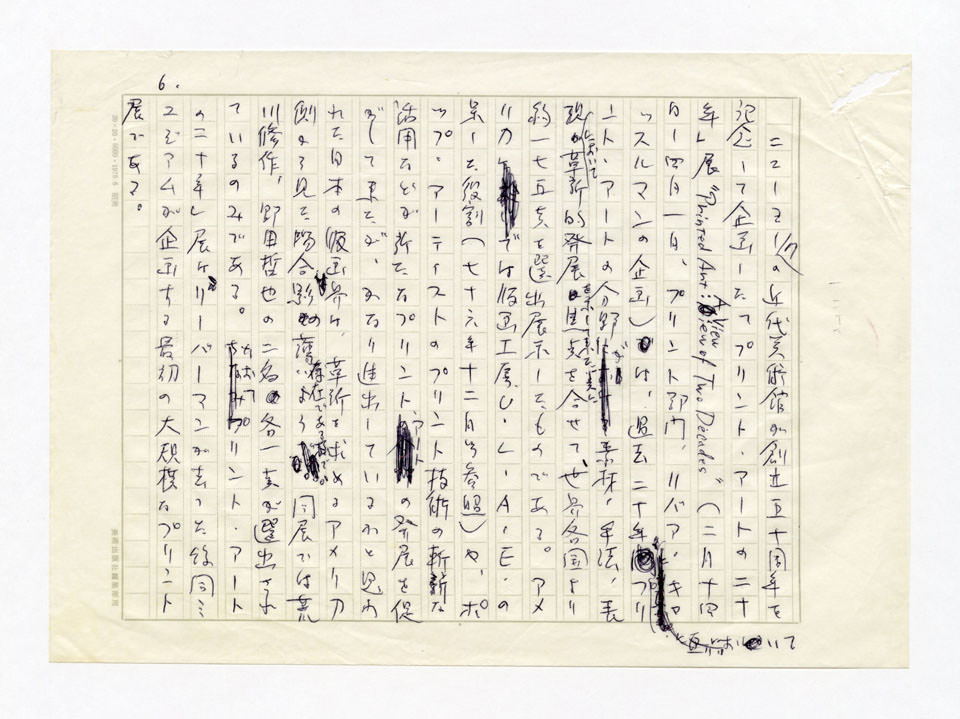 6.
ニューヨークの近代美術館が創立五十周年を
記念して企画した「プリント・アートの二十
年」展 "Printed Art: A View of Two Decades" (二月十四
日―四月一日、プリント部門、リバア・キャ
ッスルマンの企画) は、過去二十年 プリ
ント・アートの分野 素材、手法、表
現 革新的発展 を合せて、世界各国より
約一七五点を選出展示したものである。アメ
リカ では版画工房U・L・A・E・の
果した役割(七十六年十二月号参照)や、ポ
ップ・アーティストのプリント技術の斬新な
活用などが新たなプリント・アートの発展を促
がして来たが、かなり進出しているかと思わ
れた日本の版画界は、革新を求めるアメリカ
側から見た場合影の薄い存在である 同展では荒
川修作、野田哲也の二名の各一点が選出され
ているのみである。 プリント・アート
の二十年」展はリーバーマンが去った後同ミ
ュゼアムが企画する最初の大規模なプリント
展である。
20×20=400
美術出版社編集部用